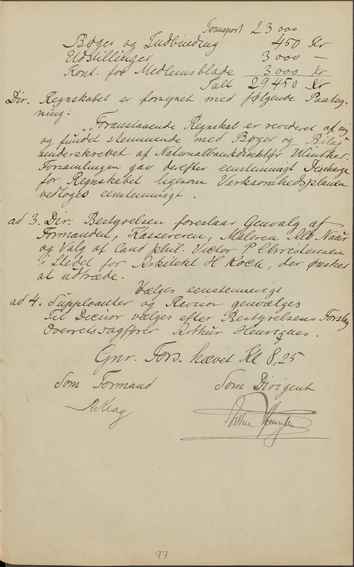 Transport 23 000
Bøger og Indbinding 450 Kr
Udstillinger 3000 —
Kont. for Medlemsblade 3000 kr
Ialt 29450 Kr
Dir. Regnskabet er forsynet med følgende Paateg-
ning.
"Foranstaaende Regnskab er revideret af os
og fundet stemmende med Bøger og Bilag
underskrevet af Nationalbankdirektør
Forsamlingen gav derefter eenstemmigt Decharge
for Regnskabet ligesom Virksomhedsplanen
vedtoges eenstemmigt.
ad 3. Dir. Bestyrelsen foreslaar Genvalg af
Formanden, Kassereren, Maleren
og Valg af Cand. phil. Victor P. Christensen
i Stedet for Arkitekt H Koch, der ønsker
at udtræde.
Vælges eenstemmigt
ad 4. Suppleanter og Revisor genvælges
Til Decisor vælges efter Bestyrelsens Forslag
Overretssagfører Arthur Henriques.
Gnr. Fors. hævet Kl 8,25
Som Formand Som Dirigent
Arthur Henriques
97